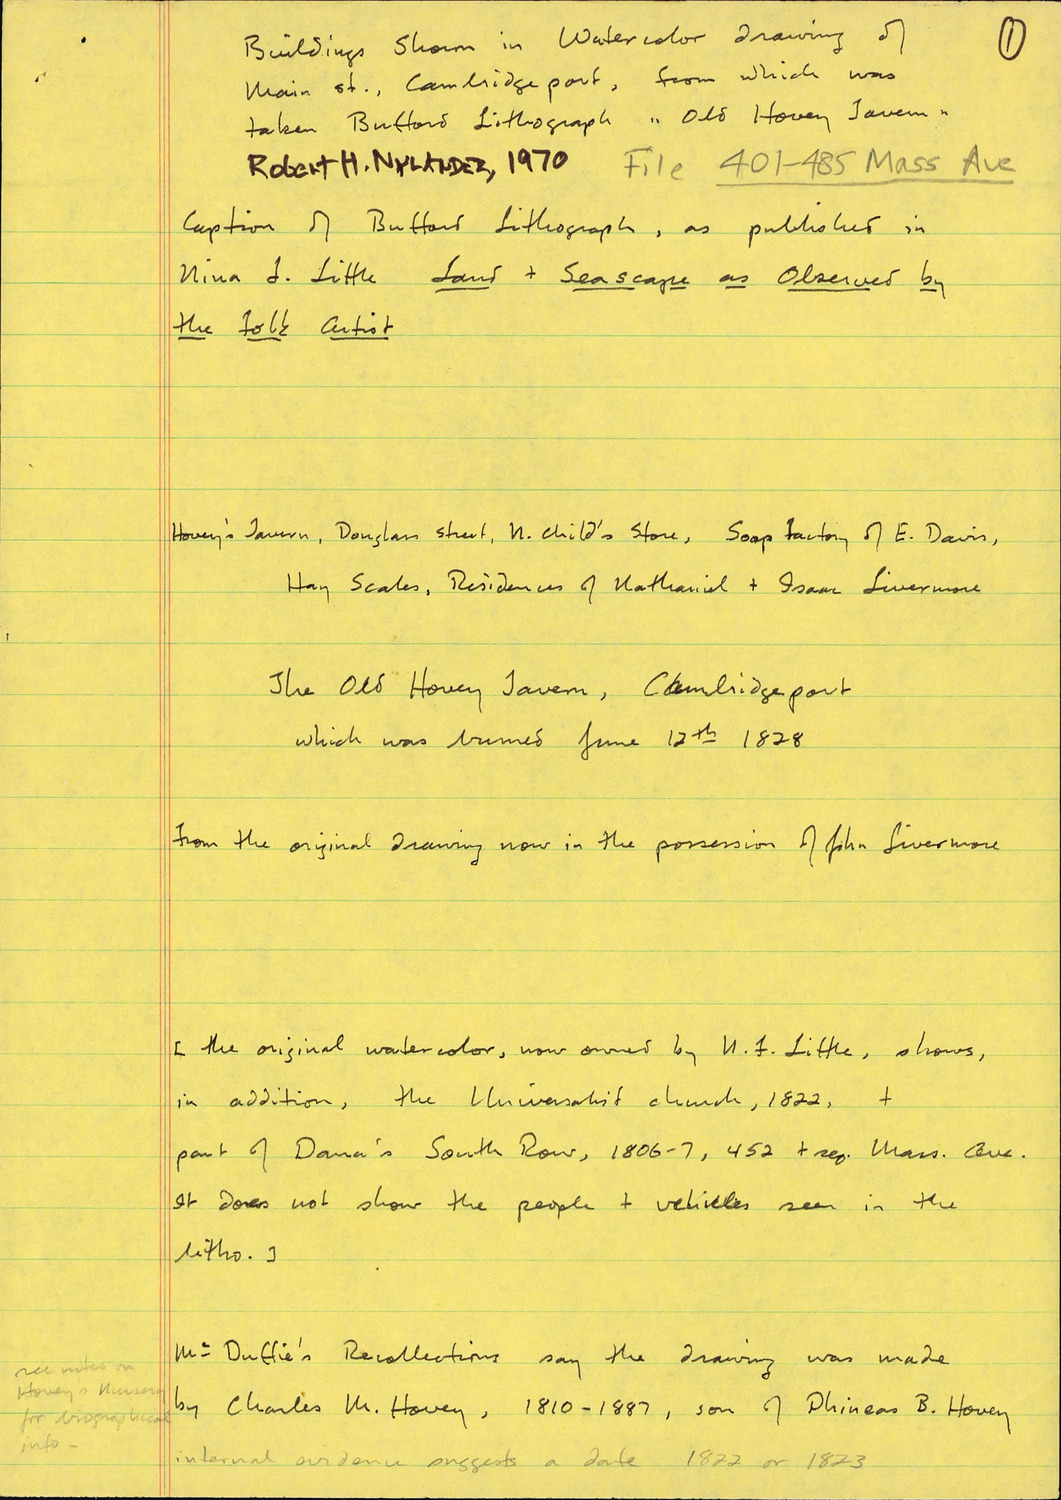 Buildings Shown in Watercolor drawing of
①
Main st., Cambridgeport, from which was
taken Bufford Lithograph "Old Hovey Tavern"
Robert H. Nylander, 1970 File 401-485 Mass Ave
Caption of Bufford Lithograph, as published in
Nina F. Little Land + Seascape as Observed by
the Folk Artist
Hovey's Tavern, Douglass street, N. Child's Store, Soap factory of E. Davis,
Hay Scales, Residences of Nathaniel + Isaac Livermore
The Old Hovey Tavern, Cambridgeport
which was burned June 12th 1828
From the original drawing now in the possession of John Livermore
[ the original watercolor, now owned by N. F. Little, shows,
in addition, the Universalist church, 1822, +
part of Dana's South Row, 1806-7, 452 + seq. Mass. Ave.
It does not show the people + vehicles seen in the
litho. ]
Mc Duffie's Recollections say the drawing was made
by Charles M. Hovey, 1810-1887, son of Phineas B. Hovey
see notes on
Hovey's Nursery
for biographical
info -
internal evidence suggests a date 1822 or 1823